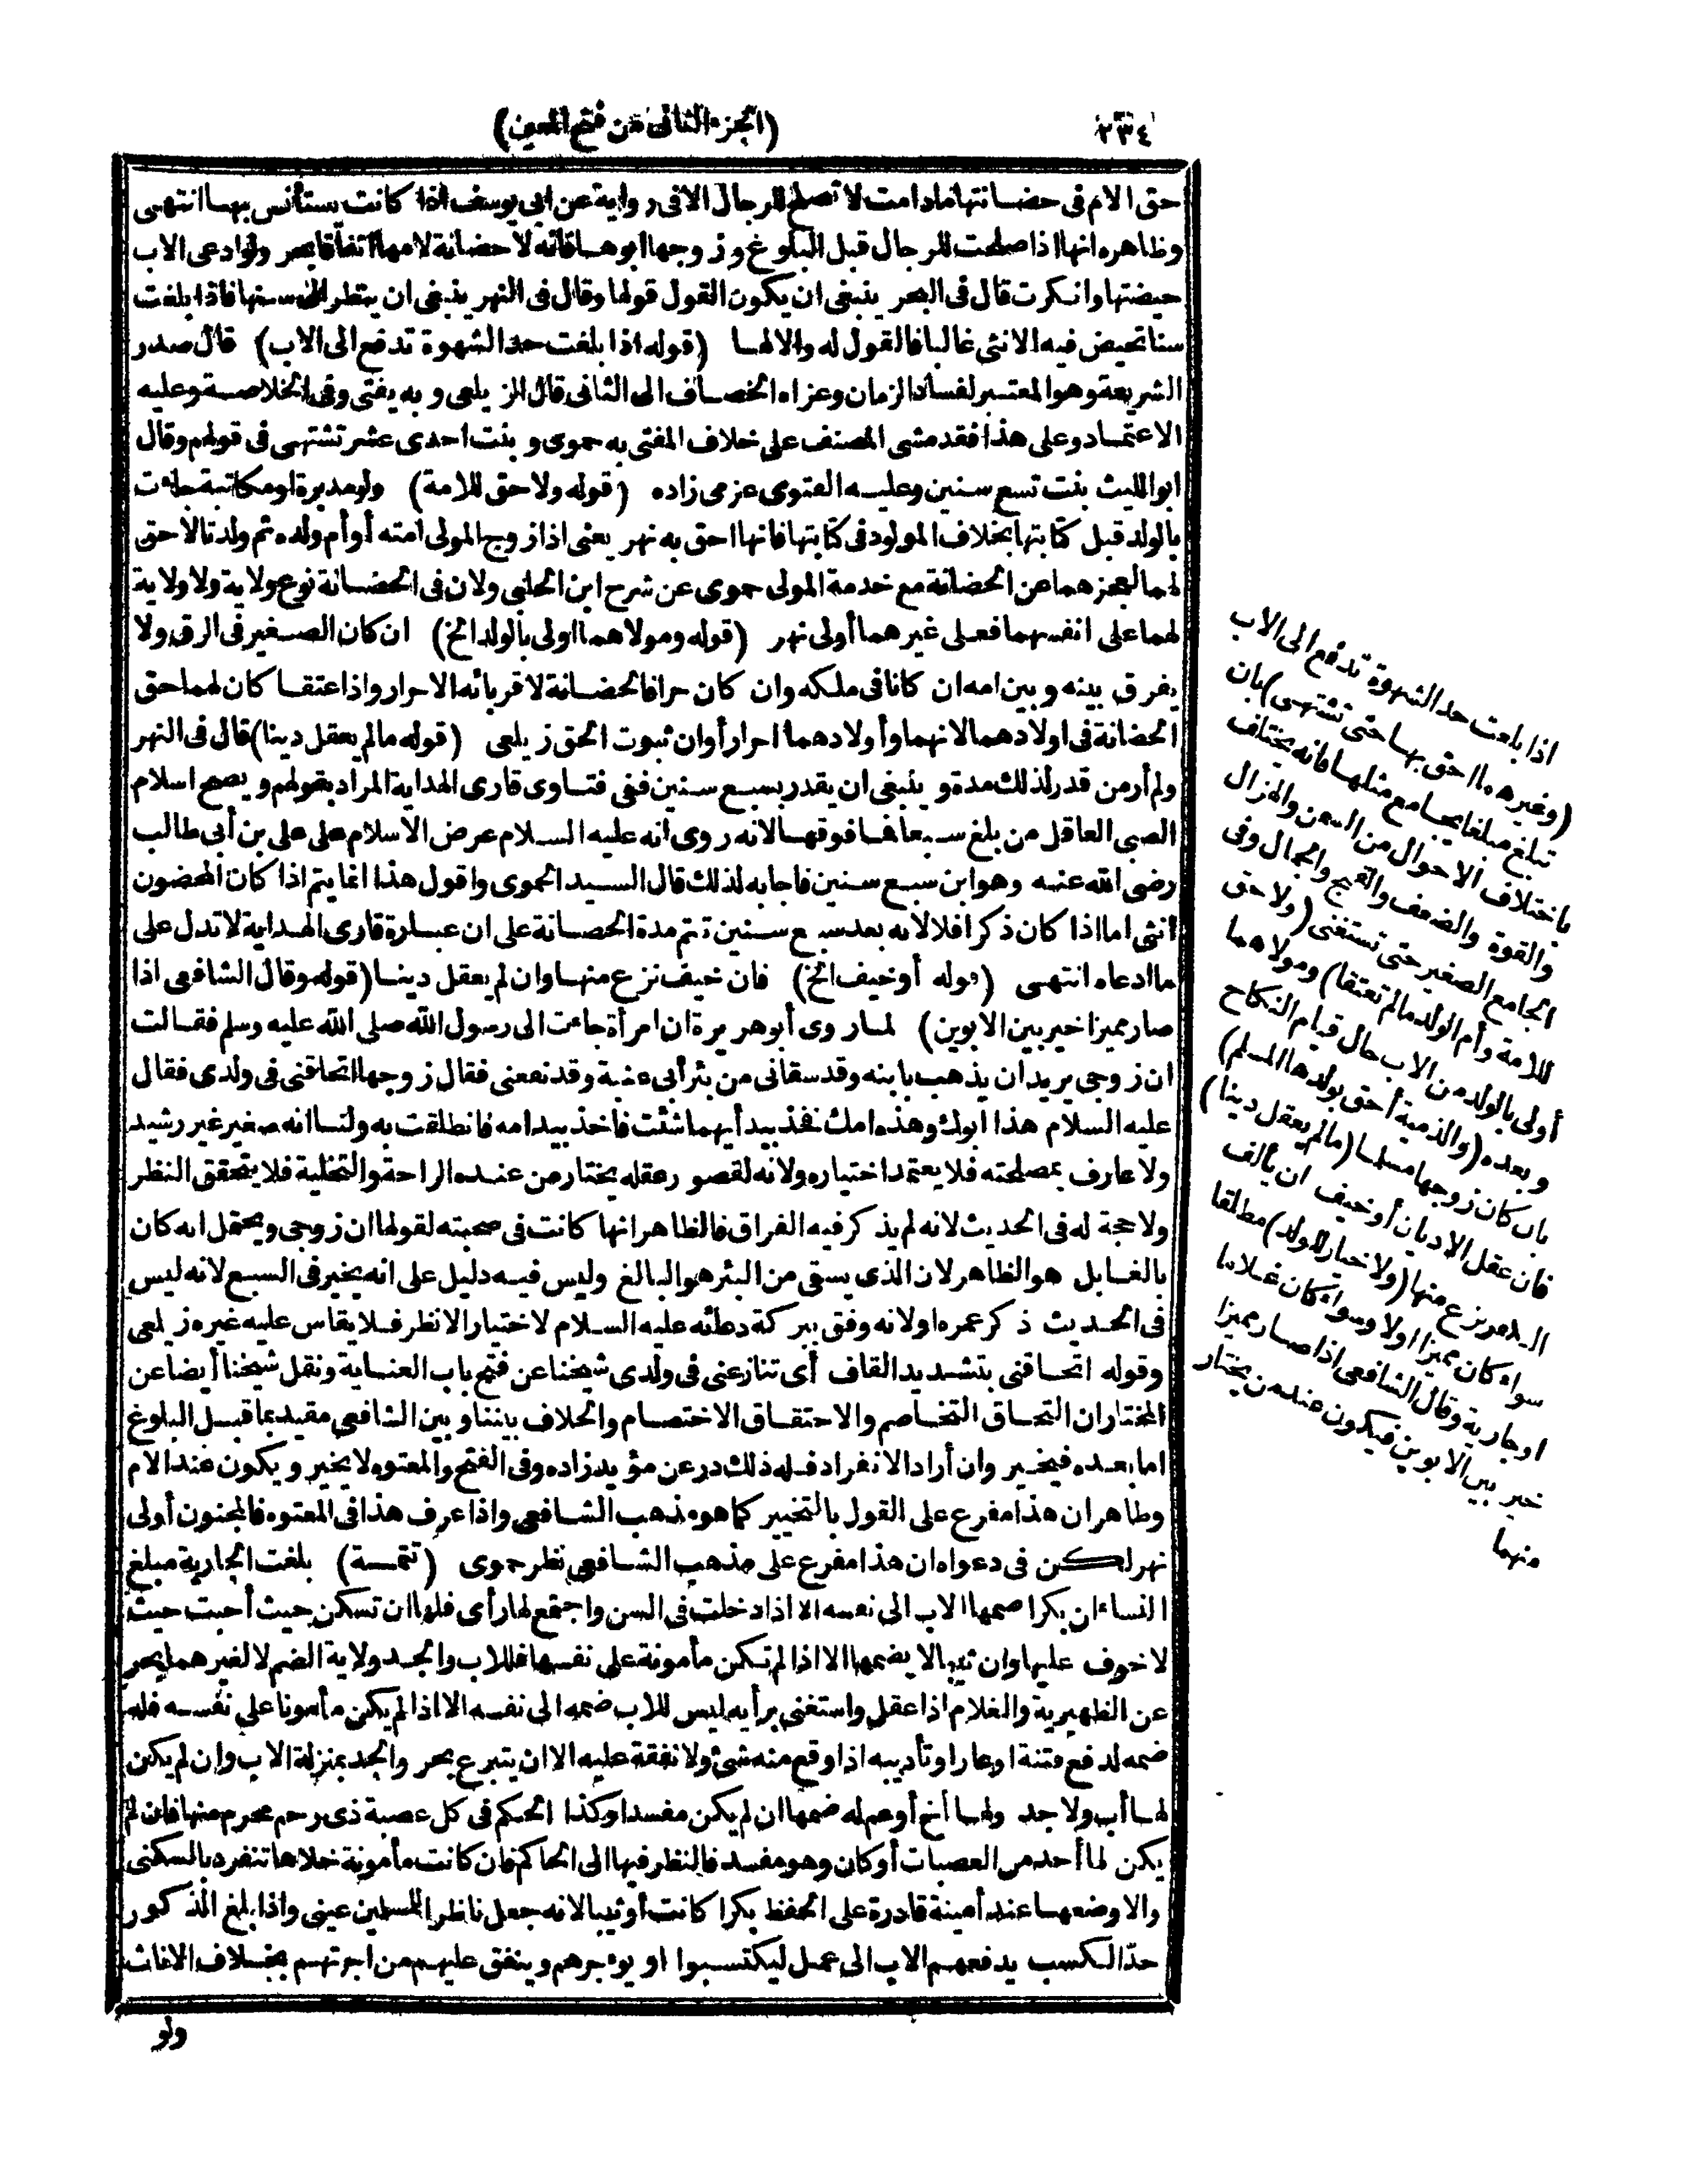 ٢٣٤
(الجزء الثانى من فتح المعين)
حق الام فى حضانتها مادامت لا تصلح للرجال الا فى رواية عن ابى يوسف اذا كانت يستأنس بها انتهى
وظاهره انها اذا صلحت للرجال قبل البلوغ وزوجها ابوها فانه لا حضانة لامها اتفاقا بحر ولو ادعى الاب
حيضتها وانكرت قال فى البحر ينبغى ان يكون القول قولها وقال فى النهر ينبغى ان ينظر الى سنها فاذا بلغت
سنا تحيض فيه الانثى غالبا فالقول له والا لها (قوله اذا بلغت حد الشهوة تدفع الى الاب) قال صدر
الشريعة وهو المعتبر لفساد الزمان وعزاه الخصاف الى الثانى قال الزيلعى وبه يفتى وفى الخلاصة وعليه
الاعتماد وعلى هذا فقد مشى المصنف على خلاف المفتى به حموى وبنت احدى عشر تشتهى فى قولهم وقال
ابو الليث بنت تسع سنين وعليه الفتوى عزمى زاده (قوله ولا حق للامة) ولو مدبرة او مكاتبة جاءت
بالولد قبل كتابتها بخلاف المولود فى كتابتها فانها احق به نهر يعنى اذا زوج المولى امته أو أم ولده ثم ولدتا لا حق
لهما لعجزهما عن الحضانة مع خدمة المولى حموى عن شرح ابن الحلبى ولان فى الحضانة نوع ولاية ولا ولاية
لهما على انفسهما فعلى غيرهما أولى نهر (قوله ومولاهما اولى بالولد الخ) ان كان الصغير فى الرق ولا
يفرق بينه وبين امه ان كانا فى ملكه وان كان حرا فالحضانة لاقربائه الاحرار واذا عتقا كان لهما حق
الحضانة فى اولادهما لانهما وأولادهما احرار أوان ثبوت الحق زيلعى (قوله مالم يعقل دينا) قال فى النهر
ولم أر من قدر لذلك مدة وينبغى ان يقدر بسبع سنين ففى فتاوى قارى الهداية المراد بقولهم ويصح اسلام
الصبى العاقل من بلغ سبعا فما فوقها لانه روى انه عليه السلام عرض الاسلام على على بن أبى طالب
رضى الله عنه وهو ابن سبع سنين فاجابه لذلك قال السيد الحموى واقول هذا انما يتم اذا كان المحضون
انثى اما اذا كان ذكرا فلا لانه بعد سبع سنين تتم مدة الحضانة على ان عبارة قارى الهداية لا تدل على
ما ادعاه انتهى (قوله أو خيف الخ) فان خيف نزع منها وان لم يعقل دينا (قوله وقال الشافعى اذا
صار مميزا خير بين الابوين) لما روى أبو هريرة ان امرأة جاءت الى رسول الله صلى الله عليه وسلم فقالت
ان زوجى يريد ان يذهب بابنه وقد سقانى من بئر أبى عنبة وقد نفعنى فقال زوجها اتحاقنى فى ولدى فقال
عليه السلام هذا ابوك وهذه امك فخذ بيد أيهما شئت فاخذ بيد امه فانطلقت به ولنا انه صغير غير رشيد
ولا عارف بمصلحته فلا يعتمد اختياره ولانه لقصور عقله يختار من عنده الراحة والتخلية فلا يتحقق النظر
ولا حجة له فى الحديث لانه لم يذكر فيه الفراق فالظاهر انها كانت فى صحبته لقولها ان زوجى ويحتمل انه كان
بالغا بل هو الظاهر لان الذى يسقى من البئر هو البالغ وليس فيه دليل على انه يخير فى السبع لانه ليس
فى الحديث ذكر عمره او لانه وفق ببركة دعائه عليه السلام لاختيار الانظر فلا يقاس عليه غيره زيلعى
وقوله اتحاقنى بتشديد القاف أى تنازعنى فى ولدى شيخنا عن فتح باب العناية ونقل شيخنا أيضا عن
المختار ان التحاق التخاصم والاحتقاق الاختصام والخلاف بيننا وبين الشافعى مقيد بما قبل البلوغ
اما بعده فيخير وان أراد الانفراد فله ذلك در عن مؤيد زاده وفى الفتح والمعتوه لا يخير ويكون عند الام
وظاهر ان هذا مفرع على القول بالتخيير كما هو مذهب الشافعى واذا عرف هذا فى المعتوه فالمجنون أولى
نهر لكن فى دعواه ان هذا مفرع على مذهب الشافعى نظر حموى (تتمة) بلغت الجارية مبلغ
النساء ان بكرا ضمها الاب الى نفسه الا اذا دخلت فى السن واجتمع لها رأى فلها ان تسكن حيث أحبت حيث
لا خوف عليها وان ثيبا لا يضمها الا اذا لم تكن مأمونة على نفسها فللاب والجد ولاية الضم لا لغيرهما بحر
عن الظهيرية والغلام اذا عقل واستغنى برأيه ليس للاب ضمه الى نفسه الا اذا لم يكن مأمونا على نفسه فله
ضمه لدفع فتنة او عار او تأديبه اذا وقع منه شئ ولا نفقة عليه الا ان يتبرع بحر والجد بمنزلة الاب وان لم يكن
لها أب ولا جد ولها أخ أو عم له ضمها ان لم يكن مفسدا وكذا الحكم فى كل عصبة ذى رحم محرم منها فان لم
يكن لها أحد من العصبات أو كان وهو مفسد فالنظر فيها الى الحاكم فان كانت مأمونة خلاها تنفرد بالسكنى
والا وضعها عند أمينة قادرة على الحفظ بكرا كانت أو ثيبا لانه جعل ناظرا للمسلمين عينى واذا بلغ الذكور
حدّ الكسب يدفعهم الاب الى عمل ليكتسبوا او يؤجرهم وينفق عليهم من اجرتهم بخلاف الاناث
ولو
اذا بلغت حد الشهوة تدفع الى الاب
(وغيرهما احق بها حتى تشتهى) بان
تبلغ مبلغا يجامع مثلها فانه يختلف
باختلاف الاحوال من السمن والهزال
والقوة والضعف والقبح والجمال وفى
الجامع الصغير حتى تستغنى (ولا حق
للامة وأم الولد مالم تعتقا) ومولاهما
أولى بالولد من الاب حال قيام النكاح
وبعده (والذمية أحق بولدها المسلم)
بان كان زوجها مسلما (مالم يعقل دينا)
فان عقل الاديان أو خيف ان يألف
الـ نزع منها (ولا خيار للولد) مطلقا
سواء كان مميزا اولا وسواء كان غلاما
او جارية وقال الشافعى اذا صار مميزا
خير بين الابوين فيكون عند من يختار
منهما